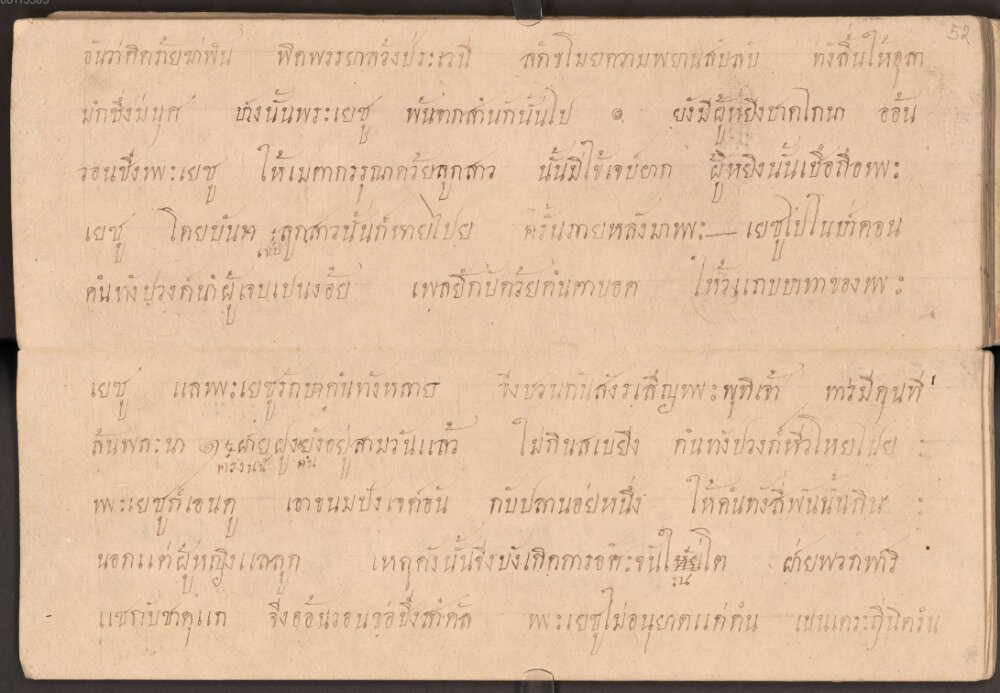 52
อันว่าคิดร้ายฆ่าฟัน ผิดพรรยาล่วงประเวนี ลักจโมยความพยานสับลับ ทังสิ้นให้อุลา
มกซึ่งมนุศ ปางนั้นพระเยซู พ้นจากสำนักนั้นไป ๑ ยังมีผู้หยิงชาดไกนา ออ้น
วอนซึ่งพระเยซู ให้เมตากรรุณาด้วยลูกสาว นั้นมีไข้เจบ์ยาก ผู้หยิงนั้นเชื่อถือพระ
เยซู โดยบันดา ลูกสาวนั้นก็หายไปย ครั้นภายหลังมาพระ — เยซูไปในป่าดอน
คนทังปวงก์นำผู้เจบเปนง่อ้ย เพลยีกับด้วยค่นตาบอด ไหว้แถบบาทาของพระ
เยซู แลพระเยซูรักษาค่นทังหลาย จึ่งชวนกันสังรเสีญพระพุทิเจ้า หารมีคุนที่
ล้นพละนา ๑ ฝ่ายฝูง ยังอยู่สามวันแล้ว ไม่กินสเบยีง ค่นทังปวงก์หิวโหยไปย
ครั้งนั้น คน
พระเยซูก็เอนดู เอาขนมปังเจดอัน กับปลาน่อยหนึ่ง ให้ค่นทังสี่พันนั้นกิน
นอกแต่ผู้หญิงแลลูก เหตุดังนั้นจึ่งบังเกิดการอัศะจัน ใหญ่โต ฝ่ายพวกฟารี
แซกับซาดุแก จึ่งออ้นวอนข่อซึ่งสำคัล พระเยซูไม่อนุยาดแต่ค่น เปนเคระญ่นิครัน